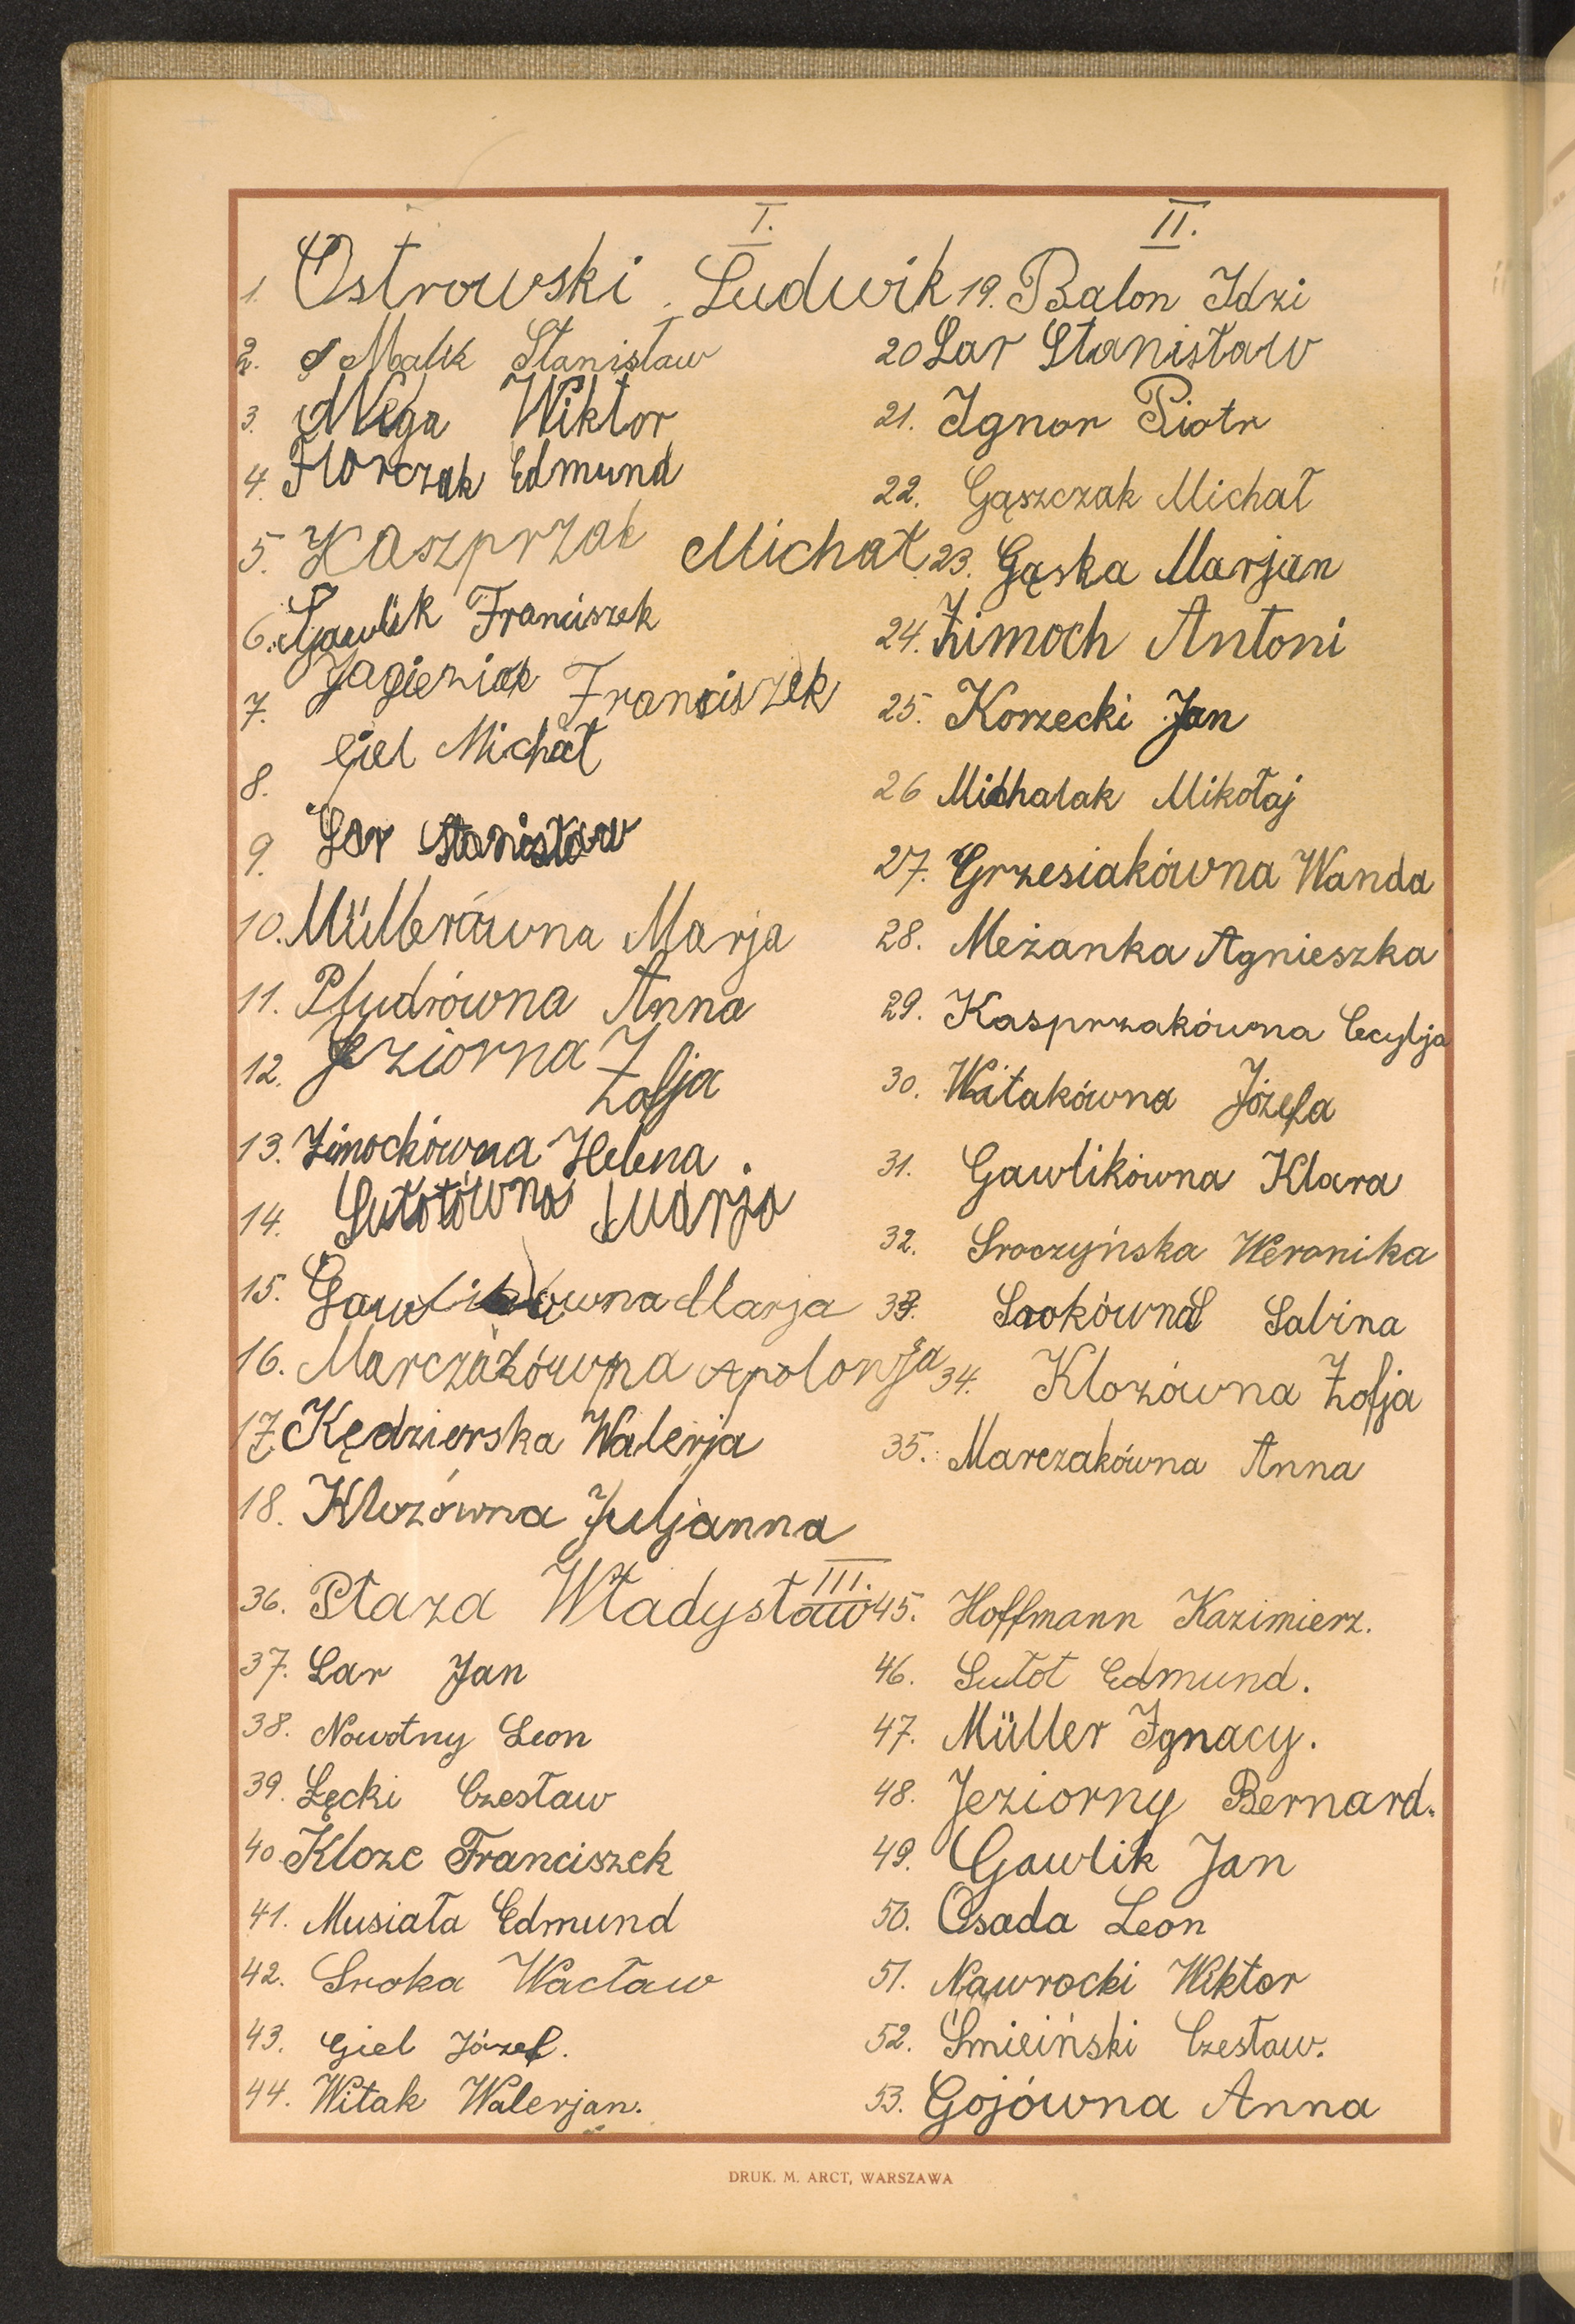 I.
1. Ostrowski Ludwik
2. Malik Stanisław
3. Nega Wiktor
4. Florczak Edmund
5. Kaszprzak Michał
6. Gawlik Franciszek
7. Jagieniak Franciszek
8. Giel Michał
9. Lar Stanisław
10. Müllerówna Marja
11. Pludrówna Anna
12. Jeziorna Zofja
13. Zimochówna Helena.
14. Sutotówna Marja
15. Gawlikówna Marja
16. Marczakówna Apolonja
17. Kędzierska Walerja
18. Klozówna Juljanna
II.
19. Balon Idzi
20 Lar Stanisław
21. Ignor Piotr
22. Gąszczak Michał
23. Gąska Marjan
24. Zimoch Antoni
25. Korzecki Jan
26 Michalak Mikołaj
27. Grzesiakówna Wanda
28. Meżanka Agnieszka
29. Kasprzakówna Cecylja
30. Witakówna Józefa
31. Gawlikówna Klara
32. Sroczyńska Weronika
33. Srokówna Sabina
34. Klozówna Zofja
35. Marczakówna Anna
III.
36. Płaza Władysław
37. Lar Jan
38. Nowotny Leon
39. Łęcki Czesław
40. Kloze Franciszek
41. Musiała Edmund
42. Sroka Wacław
43. Giel Józef.
44. Witak Walerjan.
45. Hoffmann Kazimierz.
46. Sutot Edmund.
47. Müller Ignacy.
48. Jeziorny Bernard.
49. Gawlik Jan
50. Osada Leon
51. Nawrocki Wiktor
52. Śmieiński Czesław.
53. Gojówna Anna
DRUK. M. ARCT, WARSZAWA